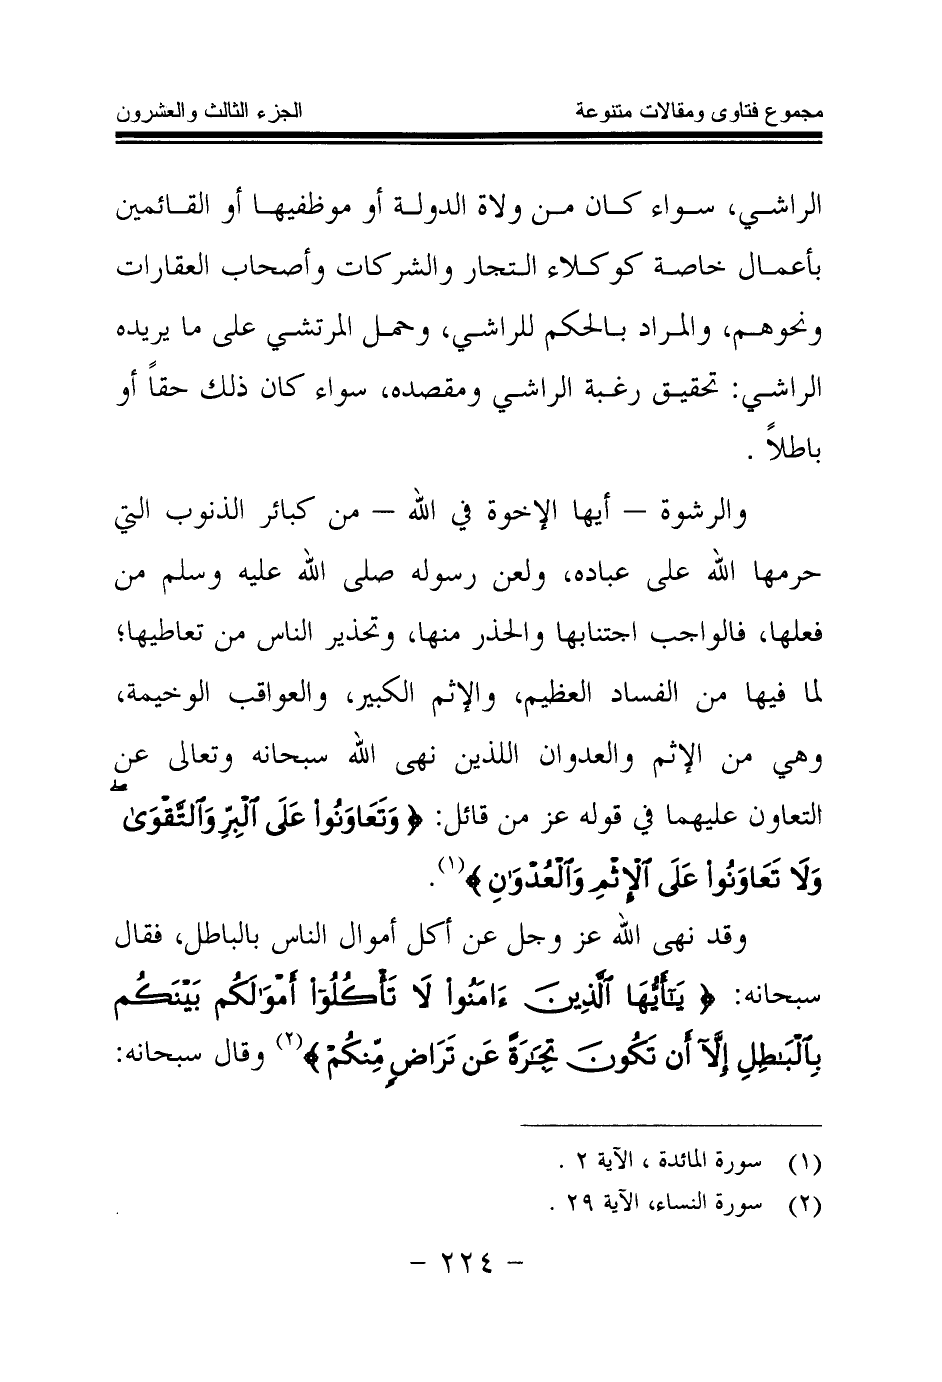 مجموع فتاوى ومقالات متنوعة الجزء الثالث والعشرون
الراشي، سواء كان من ولاة الدولة أو موظفيها أو القائمين
بأعمال خاصة كوكلاء التجار والشركات وأصحاب العقارات
ونحوهم، والمراد بالحكم للراشي، وحمل المرتشي على ما يريده
الراشي: تحقيق رغبة الراشي ومقصده، سواء كان ذلك حقاً أو
باطلاً .
والرشوة – أيها الإخوة في الله – من كبائر الذنوب التي
حرمها الله على عباده، ولعن رسوله صلى الله عليه وسلم من
فعلها، فالواجب اجتنابها والحذر منها، وتحذير الناس من تعاطيها؛
لما فيها من الفساد العظيم، والإثم الكبير، والعواقب الوخيمة،
وهي من الإثم والعدوان اللذين نهى الله سبحانه وتعالى عن
التعاون عليهما في قوله عز من قائل: ﴿ وَتَعَاوَنُواْ عَلَى ٱلْبِرِّ وَٱلتَّقْوَىٰۖ
وَلَا تَعَاوَنُواْ عَلَى ٱلْإِثْمِ وَٱلْعُدْوَٰنِ ﴾(١).
وقد نهى الله عز وجل عن أكل أموال الناس بالباطل، فقال
سبحانه: ﴿ يَٰٓأَيُّهَا ٱلَّذِينَ ءَامَنُواْ لَا تَأْكُلُوٓاْ أَمْوَٰلَكُم بَيْنَكُم
بِٱلْبَٰطِلِ إِلَّآ أَن تَكُونَ تِجَٰرَةً عَن تَرَاضٍ مِّنكُمْ ﴾(٢) وقال سبحانه:
(١) سورة المائدة ، الآية ٢ .
(٢) سورة النساء، الآية ٢٩ .
– ٢٢٤ –